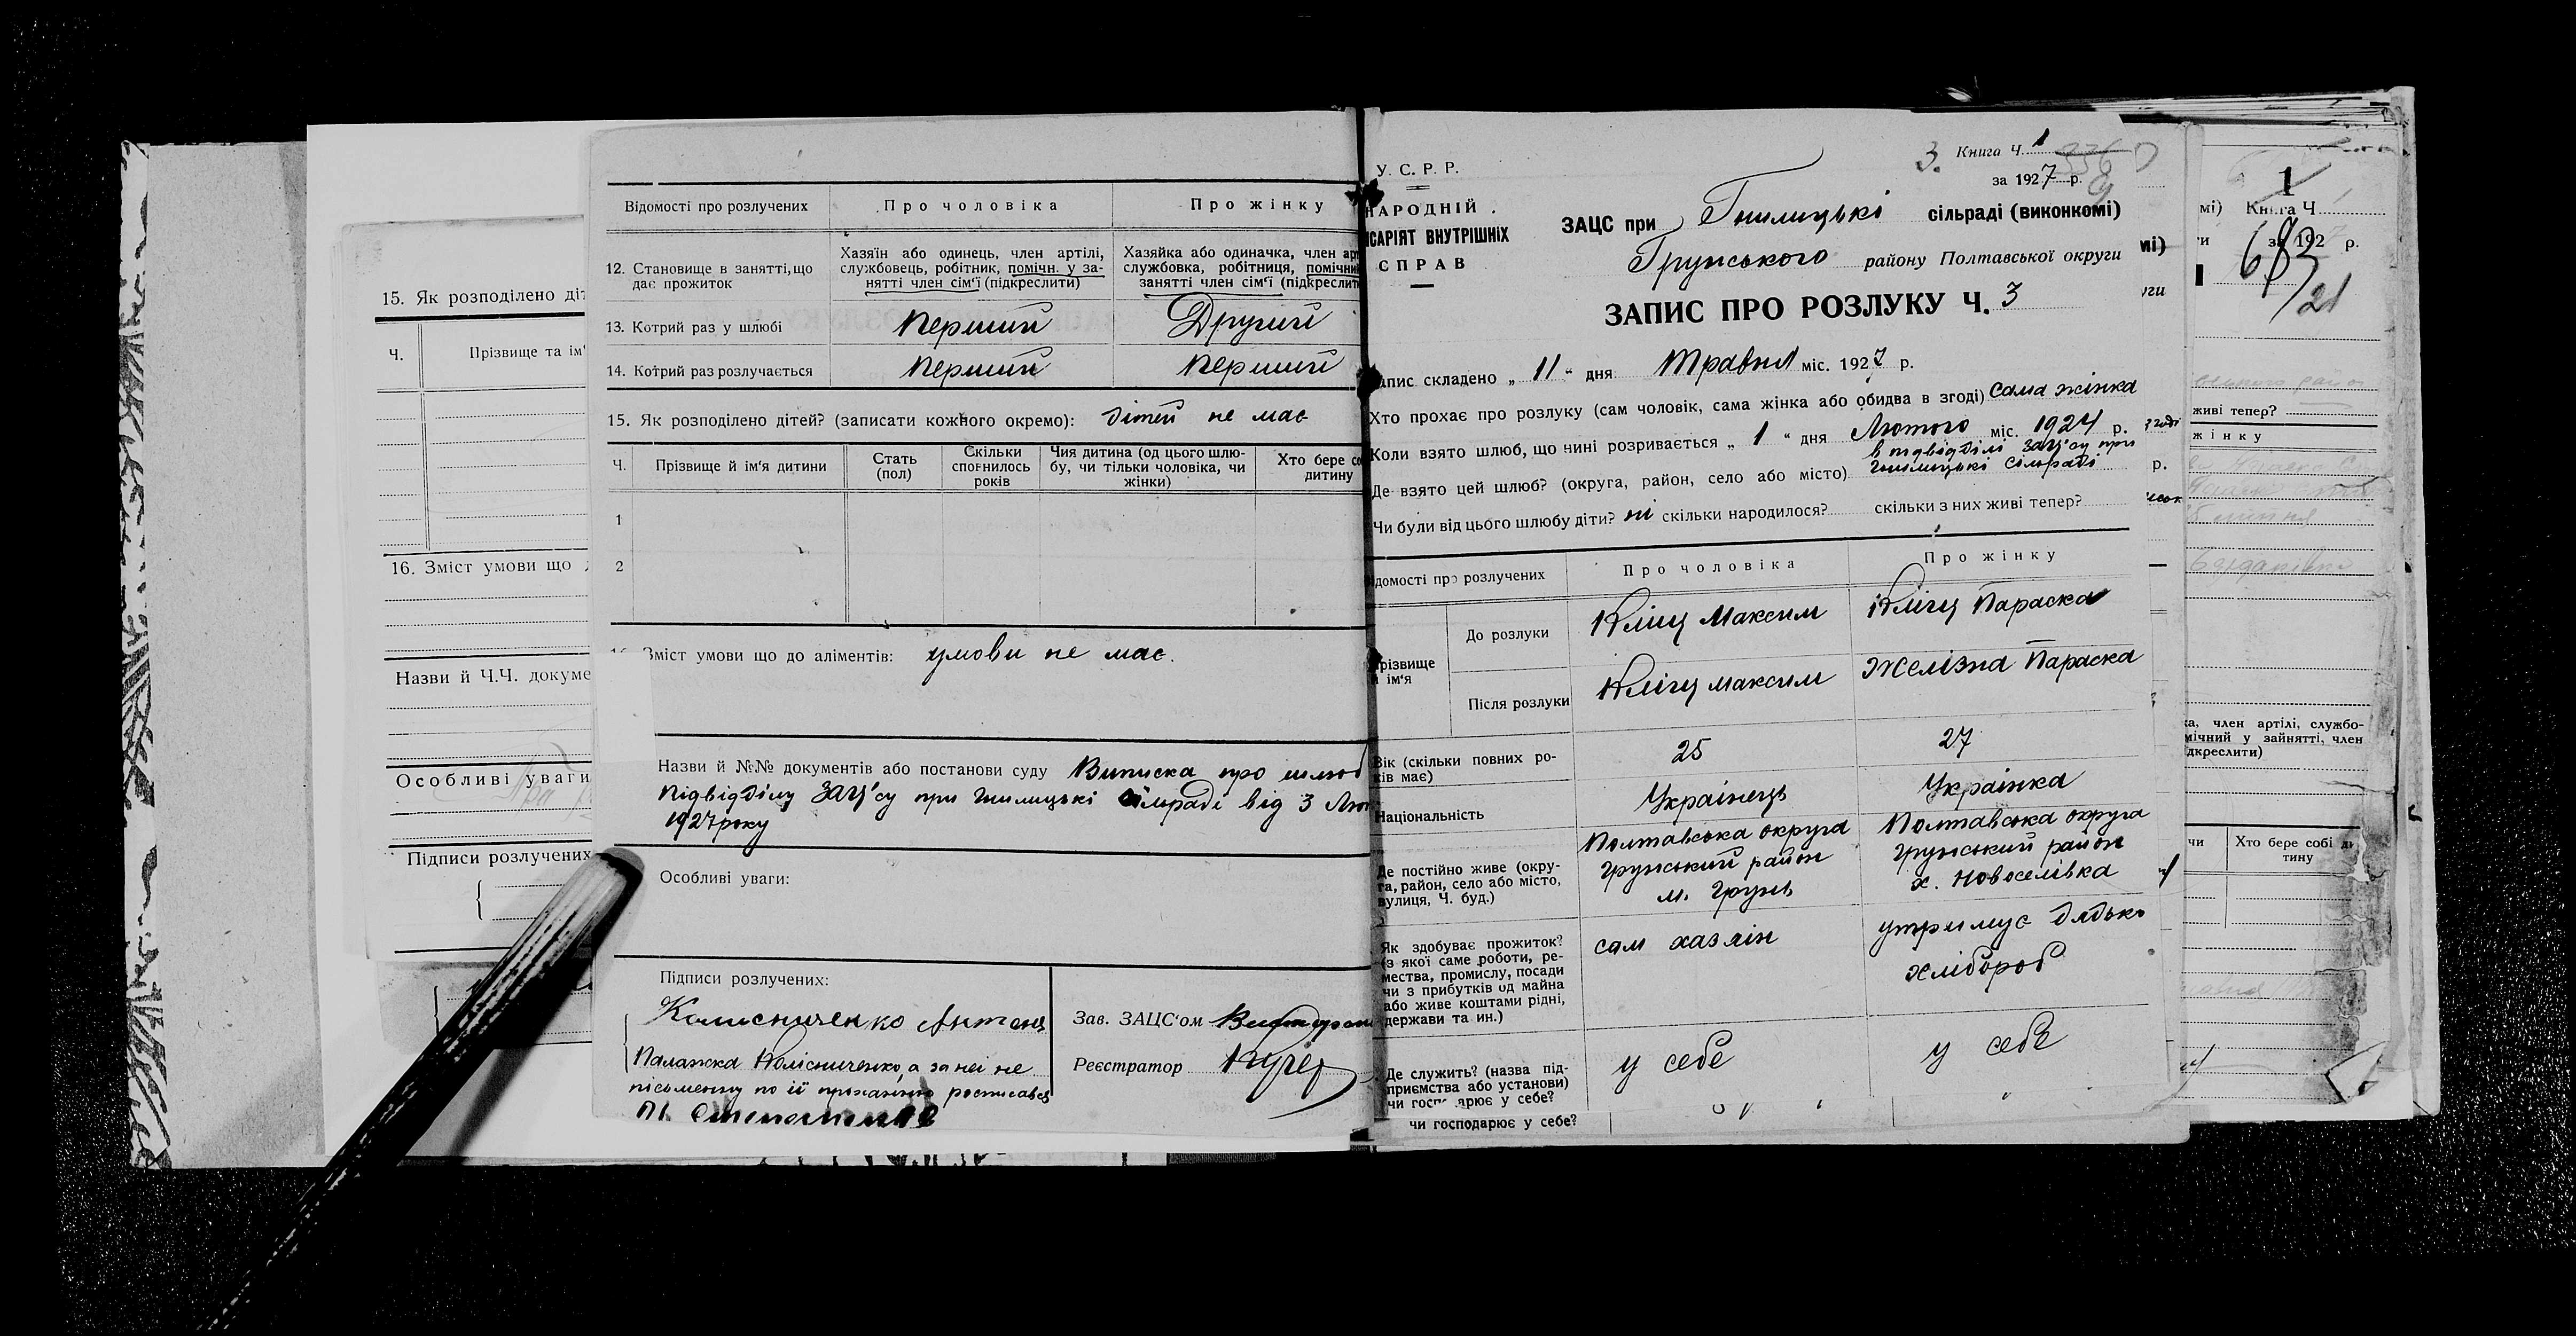 15. Як розподілено діт
Ч.
Прізвище та ім'
16. Зміст умови що
Назви й Ч.Ч. докуме
Особливі уваги
Підписи розлучених
Відомості про розлучених
Про чоловіка
Про жінку
12. Становище в занятті, що
дає прожиток
Хазяїн або одинець, член артілі,
службовець, робітник, помічн. у за-
нятті член сім'ї (підкреслити)
Хазяйка або одиначка, член арт
службовка, робітниця, помічни
занятті член сім'ї (підкреслит
13. Котрий раз у шлюбі
Перший
Другий
14. Котрий раз розлучається
Перший
Перший
15. Як розподілено дітей? (записати кожного окремо): дітей не має
Ч.
Прізвище й ім'я дитини
Стать
(пол)
Скільки
сповнилось
років
Чия дитина (од цього шлю-
бу, чи тільки чоловіка, чи
жінки)
Хто бере со
дитину
1
2
Зміст умови що до аліментів: умови не має.
Назви й №№ документів або постанови суду Виписка про шлюб
підвідділу ЗАЦ'су при Гнилицькі сільраді від 3 Лют
1927 року
Особливі уваги:
Підписи розлучених:
Колисниченко Антон
Палажка Колісниченко, а за неї не
письменну по її проханню росписався
Зав. ЗАЦС'ом
Реєстратор Кучер
У. С. Р. Р.
НАРОДНІЙ
ІСАРІЯТ ВНУТРІШНІХ
СПРАВ
3. Книга Ч. 1
за 1927 р.
ЗАЦС при Гнилицькі сільраді (виконкомі)
Грунського району Полтавської округи
ЗАПИС ПРО РОЗЛУКУ Ч. 3
апис складено „ 11 “ дня Травня міс. 1927 р.
Хто прохає про розлуку (сам чоловік, сама жінка або обидва в згоді) сама жінка
Коли взято шлюб, що нині розривається „ 1 “ дня Лютого міс. 1924 р.
Де взято цей шлюб? (округа, район, село або місто) в підвідділі ЗАЦ'су при
Гнилицькі сільраді
Чи були від цього шлюбу діти? ні скільки народилося? скільки з них живі тепер?
домості про розлучених
Про чоловіка
Про жінку
різвище
й ім'я
До розлуки
Кліщ Максим
Кліщ Параска
Після розлуки
Кліщ Максим
Желізна Параска
Вік (скільки повних ро-
ків має)
25
27
Національність
Українець
Українка
Де постійно живе (окру-
га, район, село або місто,
вулиця, Ч. буд.)
Полтавська округа
Грунський район
м. Грунь
Полтавська округа
Грунський район
х. Новоселівка
Як здобуває прожиток?
(з якої саме роботи, ре-
мества, промислу, посади
чи з прибутків од майна
або живе коштами рідні,
держави та ин.)
сам хазяїн
утримує дядько
хлібороб
Де служить? (назва під-
приємства або установи)
чи госп арює у себе?
у себе
у себе
чи господарює у себе?
мі)
ги
згоді
р.
мі) Книга Ч
и за 192 р.
1
683/21
живі тепер?
жінку
ка, член артілі, службо-
мічний у зайнятті, член
дкреслити)
чи
Хто бере собі ди
тину